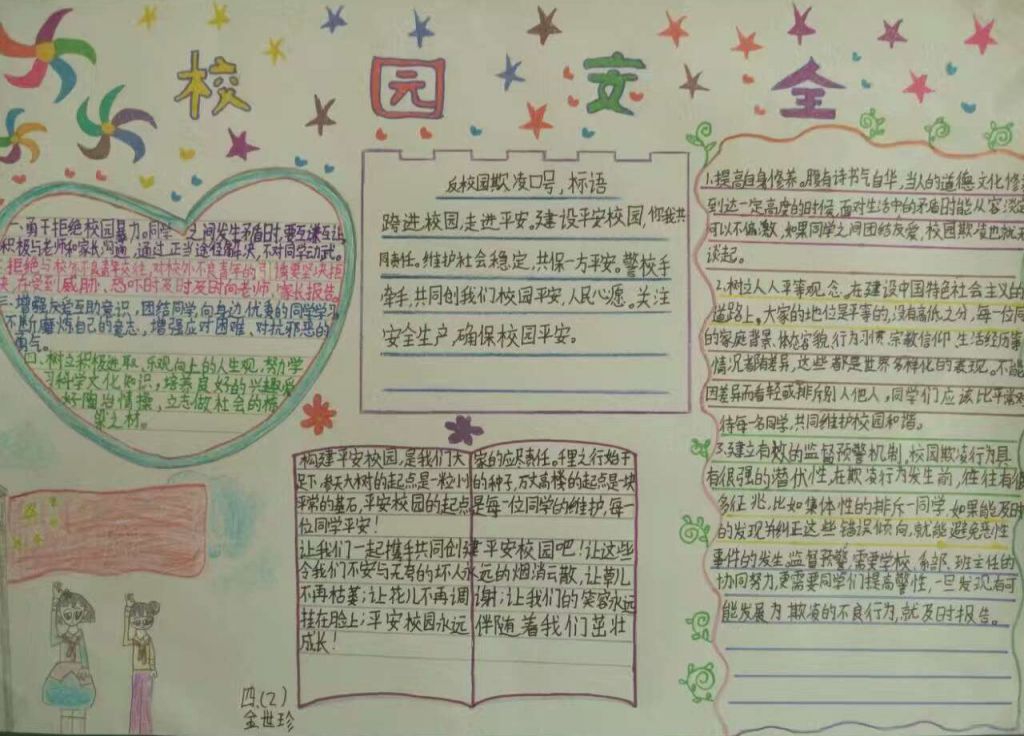 校园安全
一、勇于拒绝校园暴力。同学之间发生矛盾时,要互谦互让,
积极与老师和家长沟通,通过正当途径解决,不对同学动武。
拒绝与校外不良青年交往,对校外不良青年的引诱要坚决拒
决,在受到威胁、恐吓时及时及时向老师、家长报告。
三、增强友爱互助意识,团结同学,向身边优秀的同学学习,
不断磨炼自己的意志,增强应对困难、对抗邪恶的
勇气。
四、树立积极进取、乐观向上的人生观,努力学
习科学文化知识,培养良好的兴趣爱
好陶冶情操,立志做社会的栋
梁之材。
反校园欺凌口号,标语
跨进校园,走进平安。建设平安校园,你我共
同责任。维护社会稳定,共保一方平安。警校手
牵手,共同创我们校园平安,人民心愿。关注
安全生产,确保校园平安。
构建平安校园,是我们大家的应尽责任。千里之行始于
足下,参天大树的起点是一粒小的种子,万丈高楼的起点是一块
平常的基石,平安校园的起点是每一位同学的维护,每一
位同学平安!
让我们一起携手共同创建平安校园吧!让这些
令我们不安与无辜的坏人永远的烟消云散,让草儿
不再枯萎;让花儿不再凋谢;让我们的笑容永远
挂在脸上;平安校园永远伴随着我们茁壮
成长!
1.提高自身修养。腹有诗书气自华,当人的道德文化修
到达一定高度的时候,面对生活中的矛盾时能从容淡定
可以不偏激,如果同学之间团结友爱,校园欺凌也就无
谈起。
2.树立人人平等观念。在建设中国特色社会主义的
道路上。大家的地位是平等的,没有高低之分,每一位同
的家庭背景、体态容貌、行为习惯、宗教信仰、生活经历等
情况都有差异,这些都是世界多样化的表现。不能
因差异而看轻或排斥别人他人,同学们应该比平常对
待每一名同学,共同维护校园和谐。
3.建立有效的监督预警机制。校园欺凌行为具
有很强的潜伏性,在欺凌行为发生前,往往有很
多征兆,比如集体性的排斥一同学,如果能及时
的发现并纠正这些错误倾向,就能避免恶性
事件的发生。监督预警,需要学校、系部、班主任的
协同努力,更需要同学们提高警性,一旦发现有可
能发展为欺凌的不良行为,就及时报告。
四.(2)
金世珍